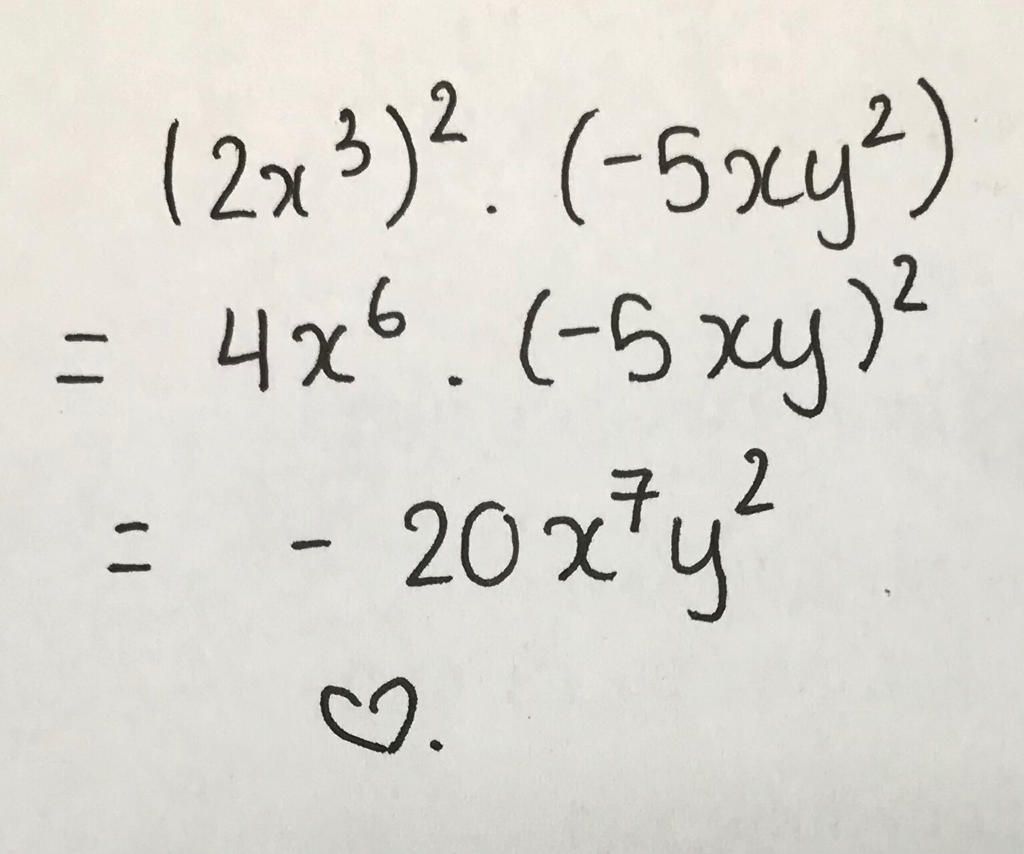 (2x³)² . (-5xy²)
= 4x⁶ . (-5xy)²
= - 20x⁷y²
♡.